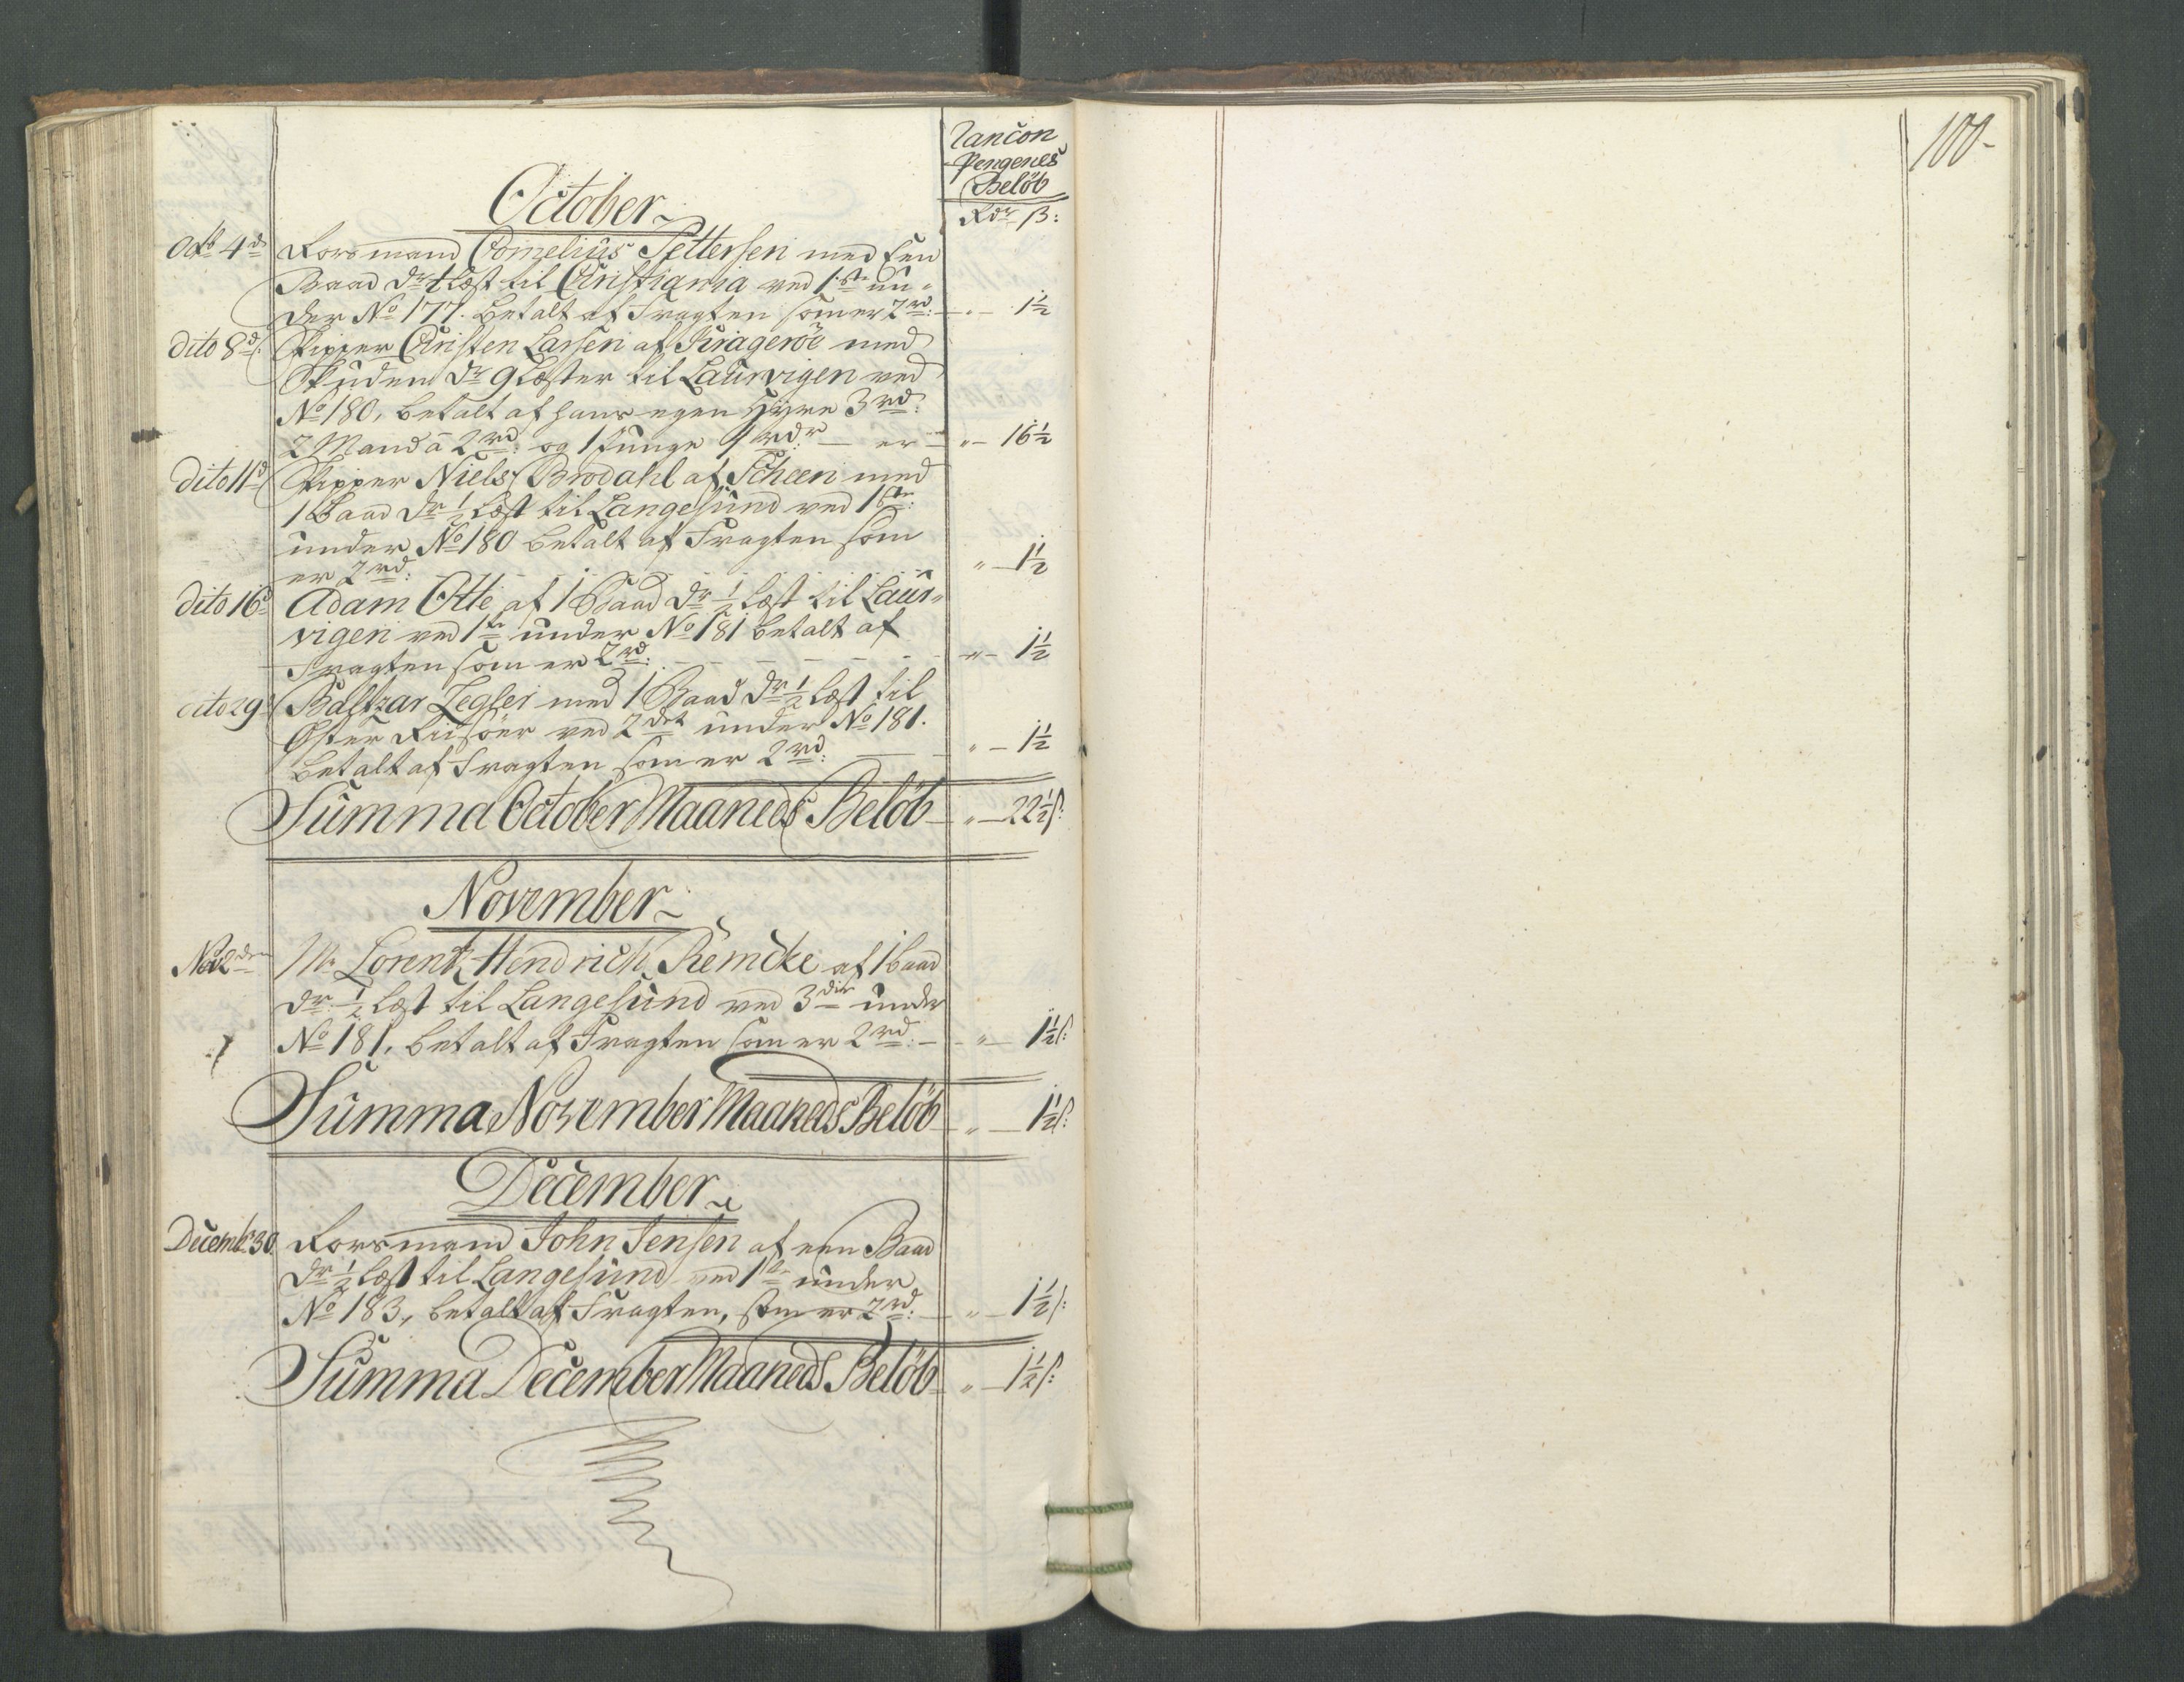 Rançon
Pengenes
Belöb
Rdr ß:
October
Octb 4de Rorsmand Cornelius Pettersen med Een
Baad dr 1 Læst til Christiania ved 1ste un-
der No 177. betalt af Fragten som er 2rd: " 1½
dito 8de Skipper Christen Larsen af Krageröe med
Skuden dr 9 Læster til Laurvigen ved
No 180, betalt af hans egen Hyre 3rd:
2 Mand a 2rd: og 1 Junge 1rdr er " 16½
dito 11d Skipper Niels Brodahl af Scheen med
1 Baad dr ½ Læst til Langesund ved 1ste
under No 180 betalt af Fragten som
er 2rd: " 1½
dito 16d Adam Otte af 1 Baad dr ½ Læst til Laur-
vigen ved 1te under No 181 betalt af
Fragten som er 2rd: " 1½
dito 29d Baltzar Zegler med 1 Baad dr ½ Læst til
Öster Riisöer ved 2det under No 181.
betalt af Fragten som er 2rd: " 1½
Summa October Maaneds Belöb " 22½ ß:
November
Nov 2den Mr Lorentz Hendrich Remcke af 1 Baad
dr ½ Læst til Langesund ved 3die under
No 181, betalt af Fragten som er 2rd: " 1½ ß:
Summa November Maaneds Belöb " 1½ ß:
December
Decembr 30 Rorsmand John Jensen af een Baad
dr ½ Læst til Langesund ved 1te under
No 183, betalt af Fragten, som er 2rd: " 1½ ß:
Summa December Maaneds Belöb " 1½ ß:
100-